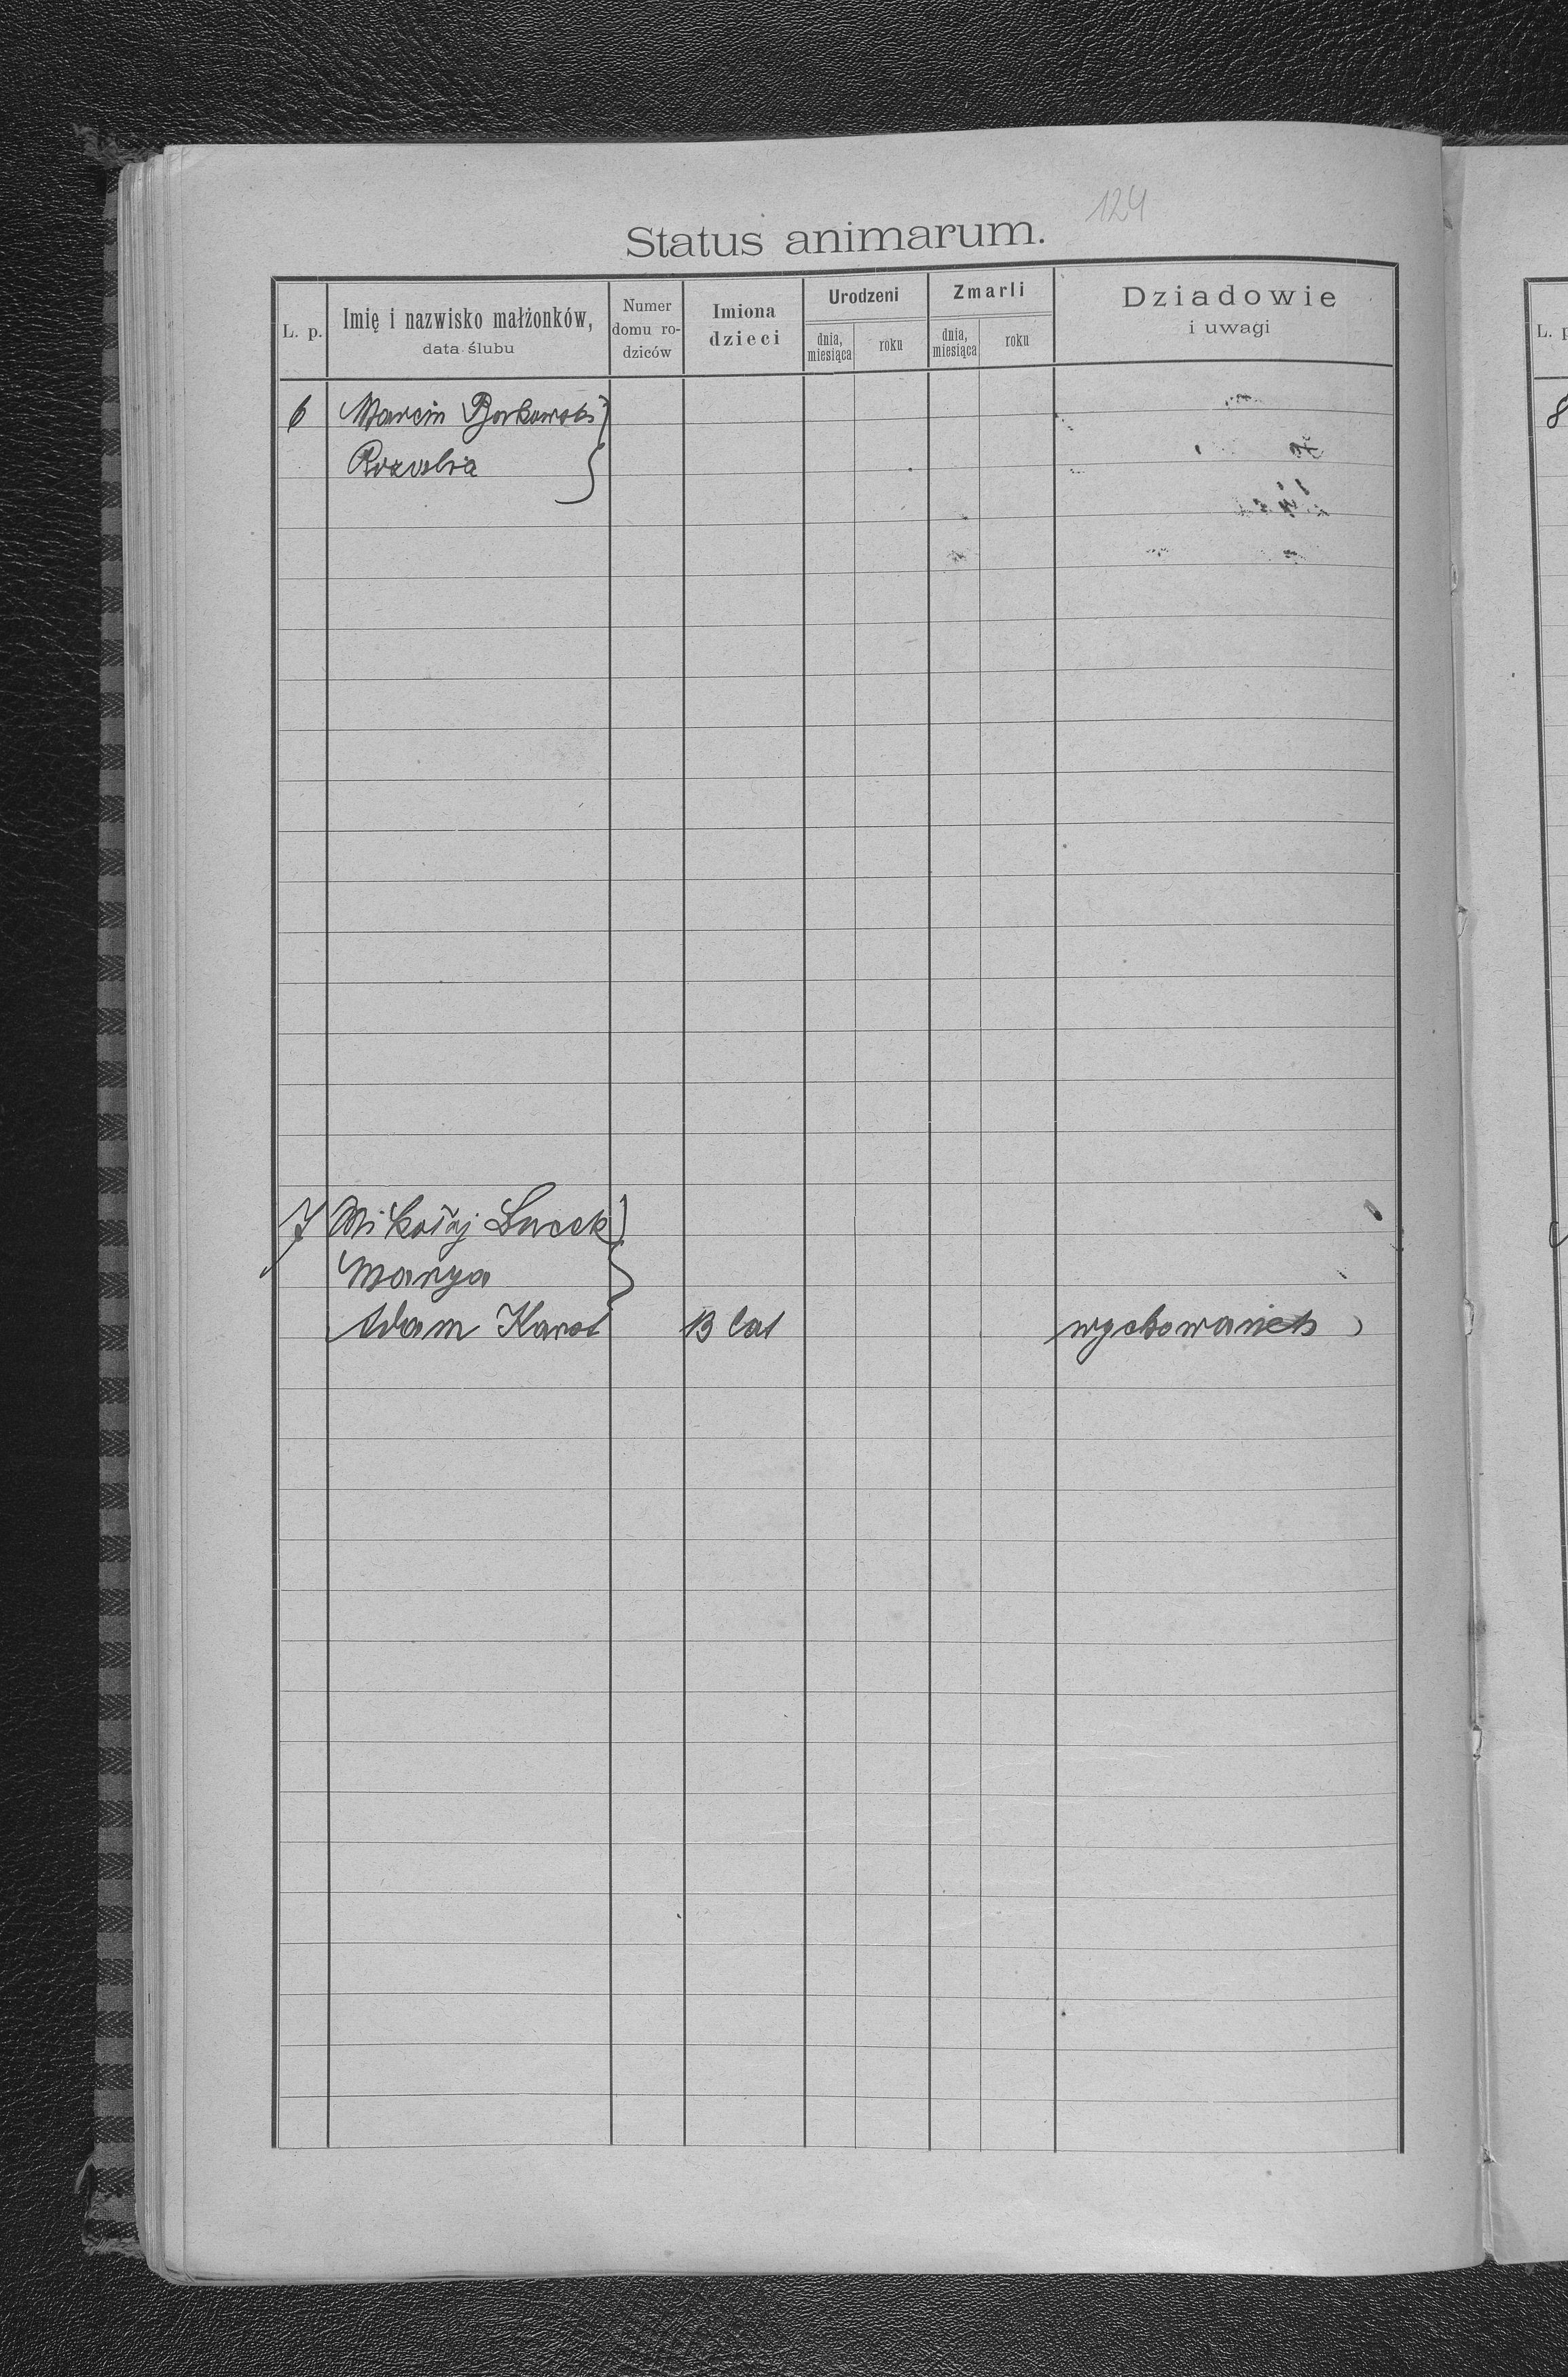 124
Status animarum.
L. p.
Imię i nazwisko małżonków,
data ślubu
Numer
domu ro-
dziców
Imiona
dzieci
Urodzeni
dnia,
miesiąca
roku
Zmarli
dnia,
miesiąca
roku
Dziadowie
i uwagi
6 Marcin Borkowski
Rozalia
7 Mikołaj
Marya
Adam Karol 13 lat wychowanek
L. p
8